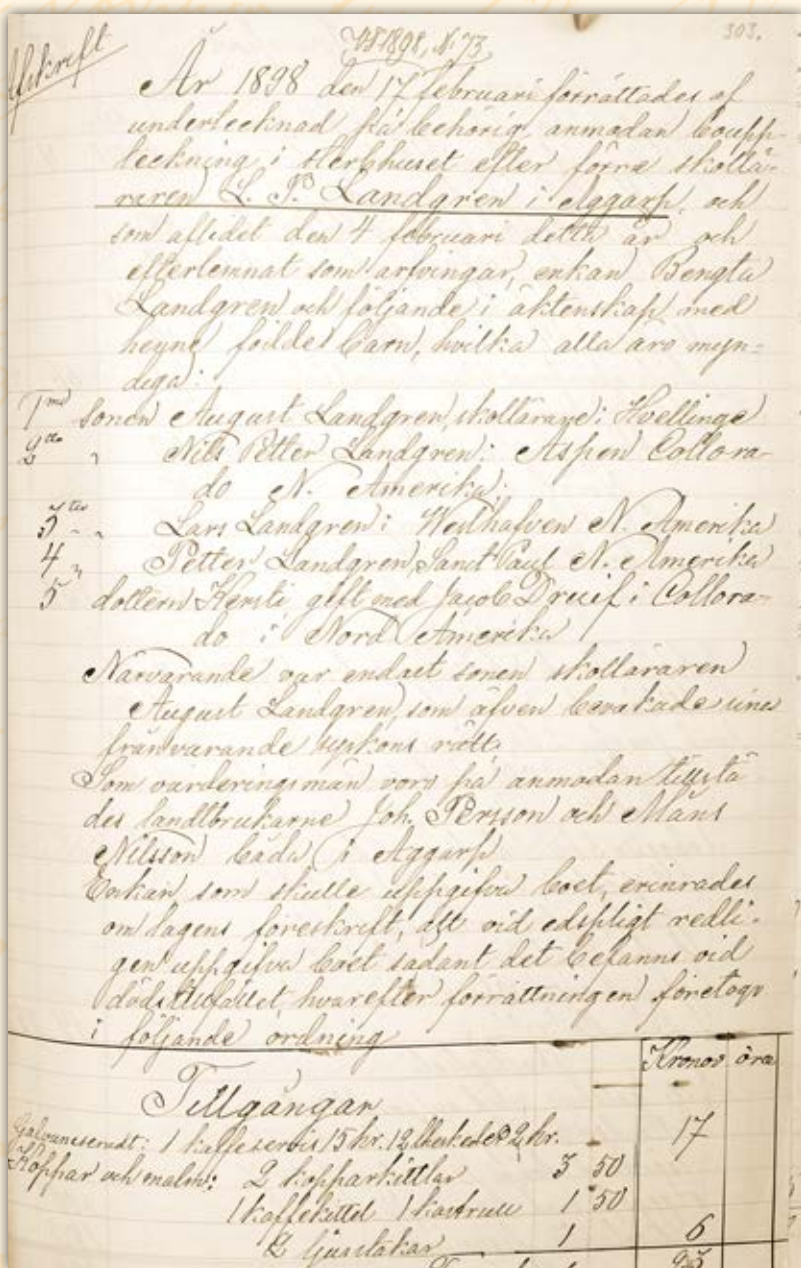 303.
Afskrift
1898, N: 73
År 1898 den 17 februari förrättades af
undertecknad på behörig anmodan boupp-
teckning i sterbhuset efter förre skollä-
raren L. P. Landgren i Aggarp, och
som aflidet den 4 februari detta år och
efterlemnat som arfvingar, enkan Bengta
Landgren och följande i äktenskap med
henne födde barn, hvilka alla äro myn-
diga:
1mo sonen August Landgren, skollärare i Hvellinge
2do " Nils Petter Landgren i Aspen Collora-
do N. Amerika.
3tio " Lars Landgren i Westhafven N. Amerika
4 " Petter Landgren, Sanct Paul N. Amerika
5 dottern Kersti gift med Jacob Druif i Collora-
do i Nord Amerika
Närvarande var endast sonen skolläraren
August Landgren, som äfven bevakade sina
frånvarande syskons rätt.
Som värderingsmän voro på anmodan tillstä
des landtbrukarne Joh. Persson och Måns
Nilsson båda i Aggarp
Enkan som skulle uppgifva boet, erinrades
om lagens föreskrift, att vid edspligt redli-
gen uppgifva boet sådant det befanns vid
dödstillfället, hvarefter förrättningen företogs
i följande ordning
Kronor öre
Tillgångar
1 kaffeservis 15 kr. 12 theskedar 2 kr. 17
Koppar och malm: 2 kopparkittlar 3 50
1 kaffekittel 1 kastrull 1 50
2 ljusstakar 1 6
23